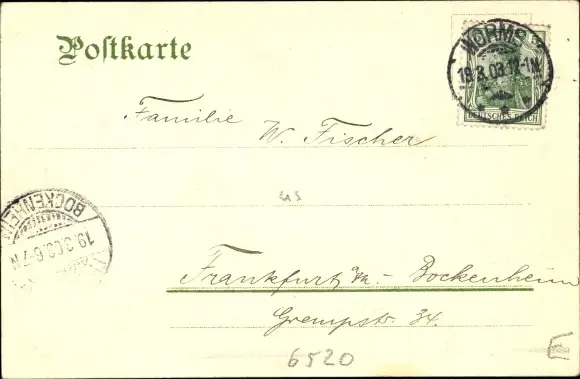 Postkarte
WORMS
19.3.03.12-1N
DEUTSCHES REICH
Familie
W. Fischer
BOCKENHEIM
19.3.03.6-7N
Frankfurt a/M. - Bockenheim
Grempstr. 34.
6520
E